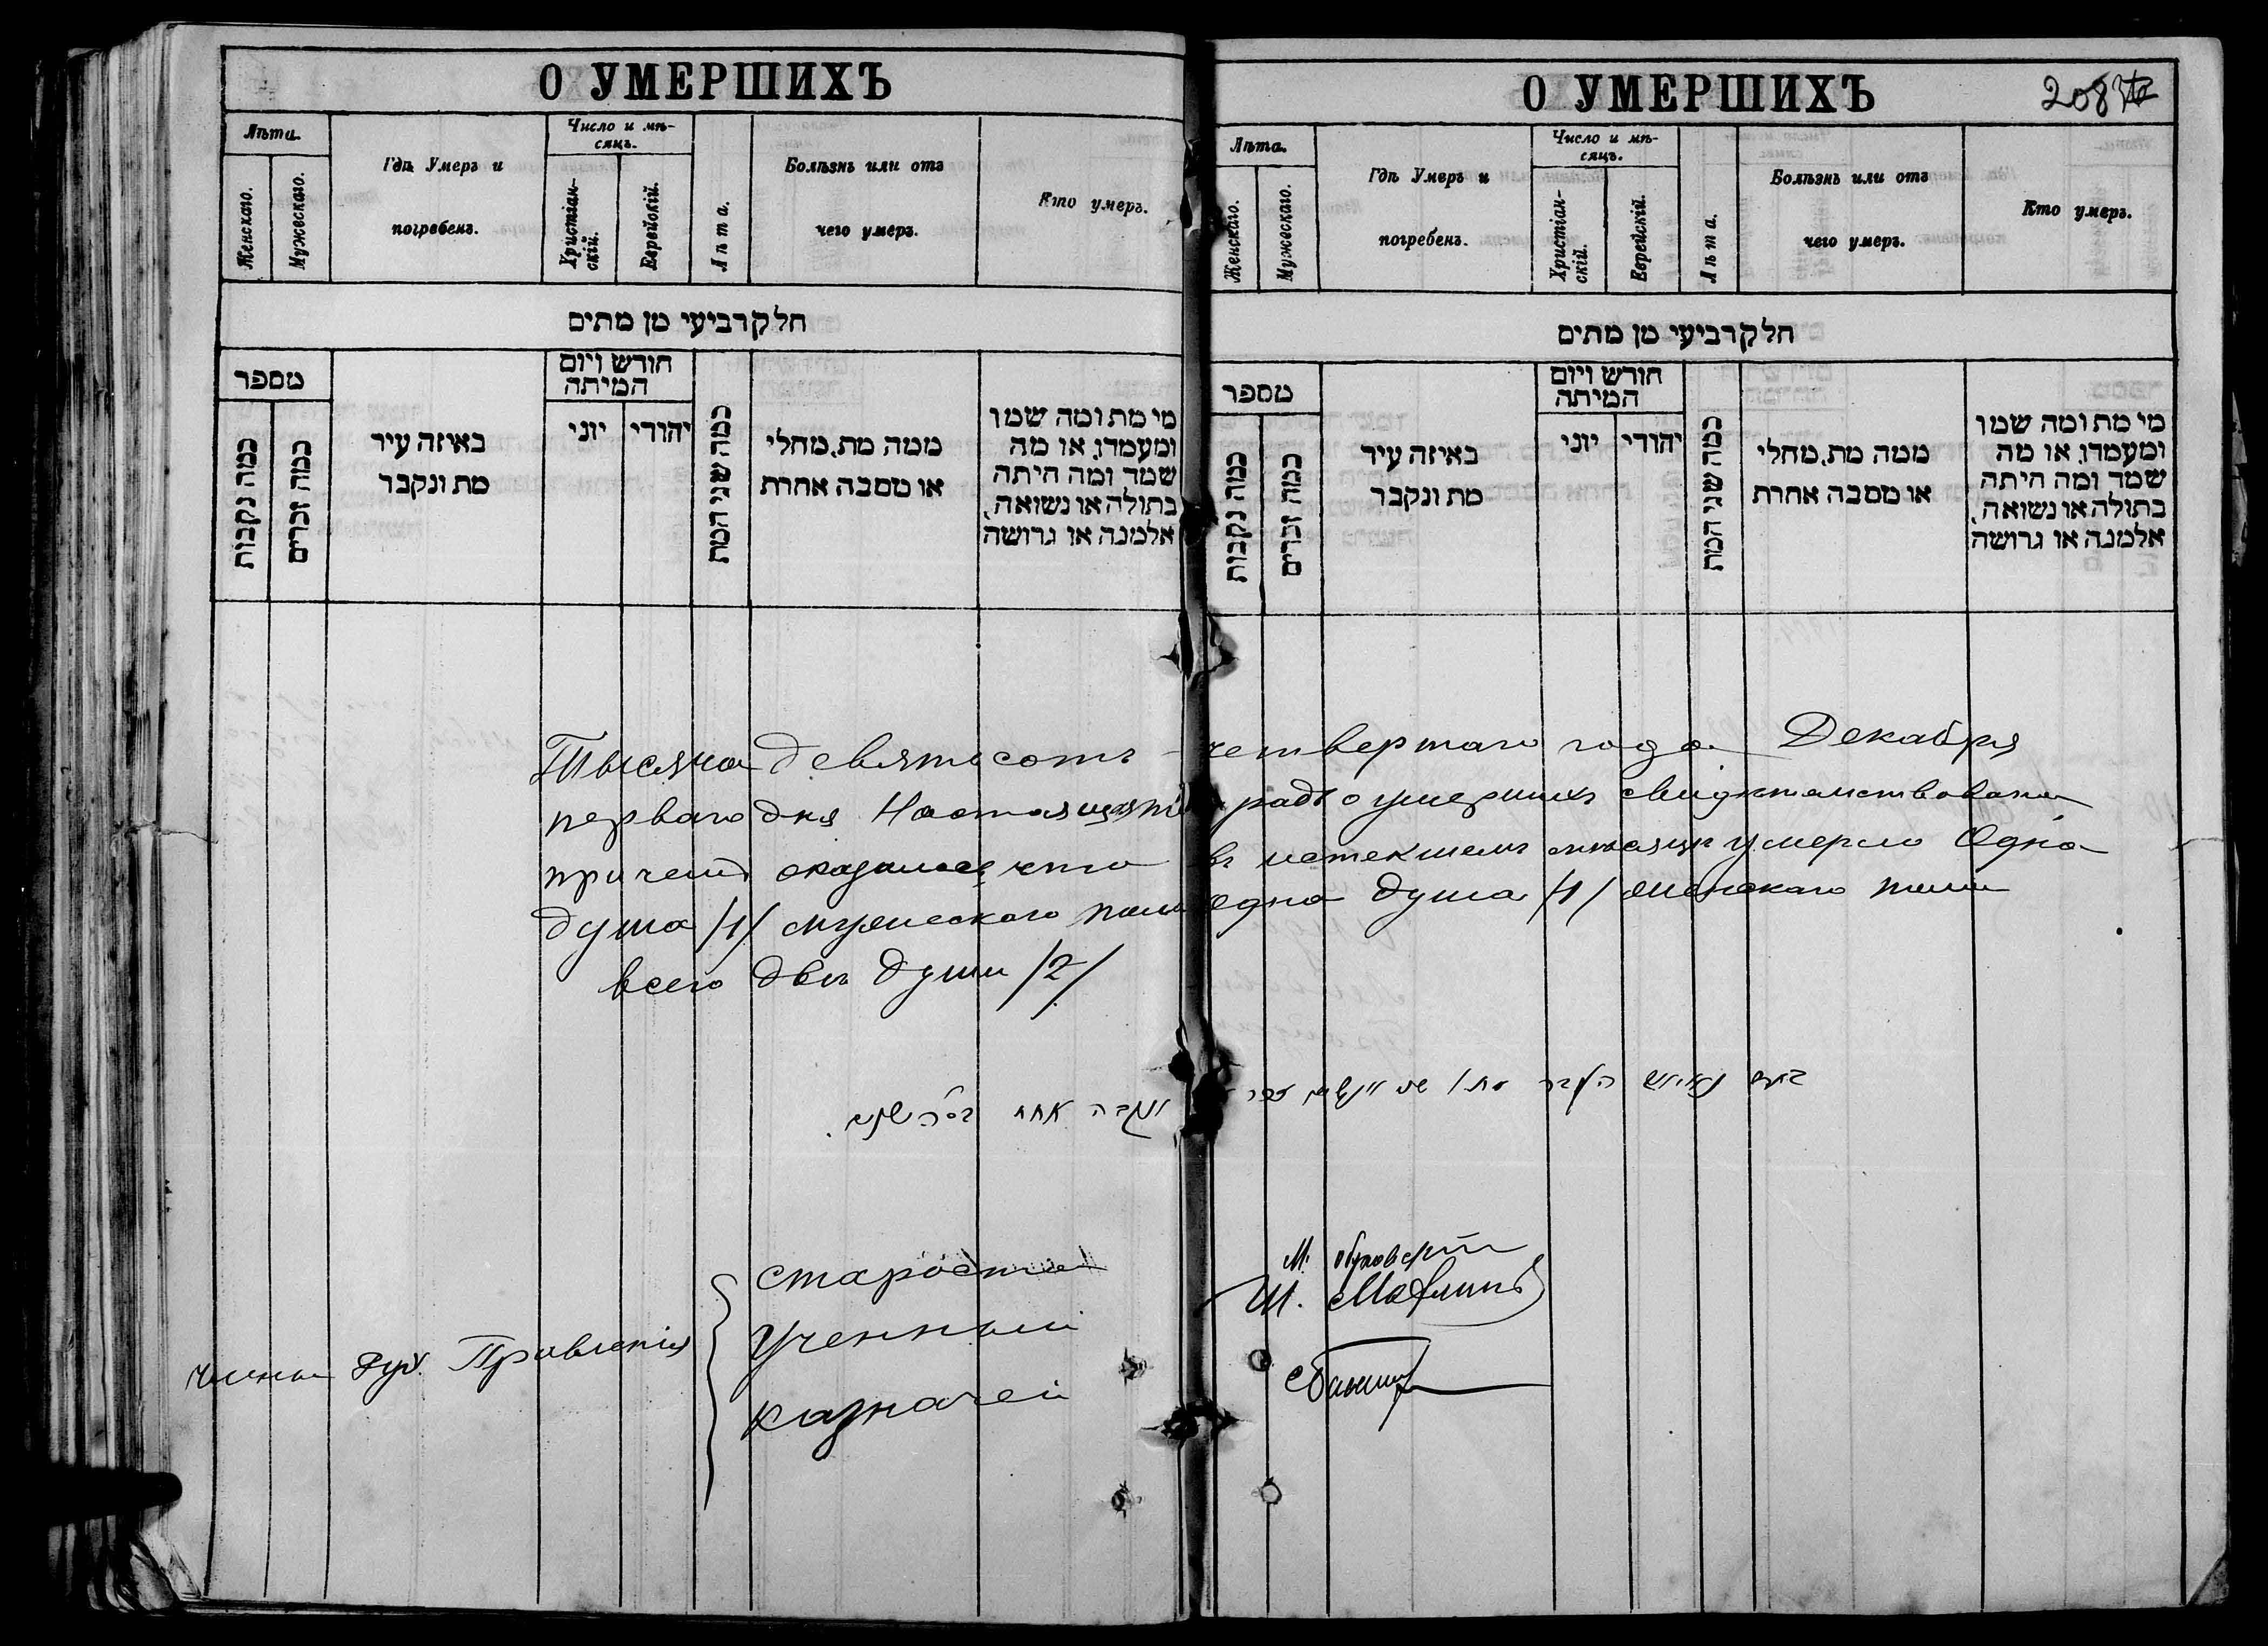 О УМЕРШИХЪ
Лѣта.
Женскаго.
Мужескаго.
Гдѣ Умеръ и
погребенъ.
Число и мѣ-
сяцъ.
Христіан-
скій.
Еврейскій.
Лѣта.
Болѣзнь или отъ
чего умеръ.
Кто умеръ.
חלק רביעי מן מתים
מספר
כמה נקבות
כמה זכרים
באיזה עיר
מת ונקבר
חודש ויום
המיתה
יוני
יהודי
כמה שני המת
ממה מת, מחלי
או מסבה אחרת
מי מת ומה שמו
ומעמדו, או מה
שמד ומה היתה
בתולה או נשואה,
אלמנה או גרושה
О УМЕРШИХЪ
208
Лѣта.
Женскаго.
Мужескаго.
Гдѣ Умеръ и
погребенъ.
Число и мѣ-
сяцъ.
Христіан-
скій.
Еврейскій.
Лѣта.
Болѣзнь или отъ
чего умеръ.
Кто умеръ.
חלק רביעי מן מתים
מספר
כמה נקבות
כמה זכרים
באיזה עיר
מת ונקבר
חודש ויום
המיתה
יוני
יהודי
כמה שני המת
ממה מת, מחלי
או מסבה אחרת
מי מת ומה שמו
ומעמדו, או מה
שמד ומה היתה
בתולה או נשואה,
אלמנה או גרושה
Тысяча девятьсотъ четвертаго года Декабря
перваго дня Настоящая о умершихъ свидѣтельствована
причемъ оказалось что въ истекшемъ мѣсяцѣ умерло Одна
душа /1/ мужескаго пола одна душа /1/ женскаго пола
всего двѣ души /2/
ונקבה אחת
Члены Дух. Правленія
Староста
Ученный
Казначей
М.
Ш.